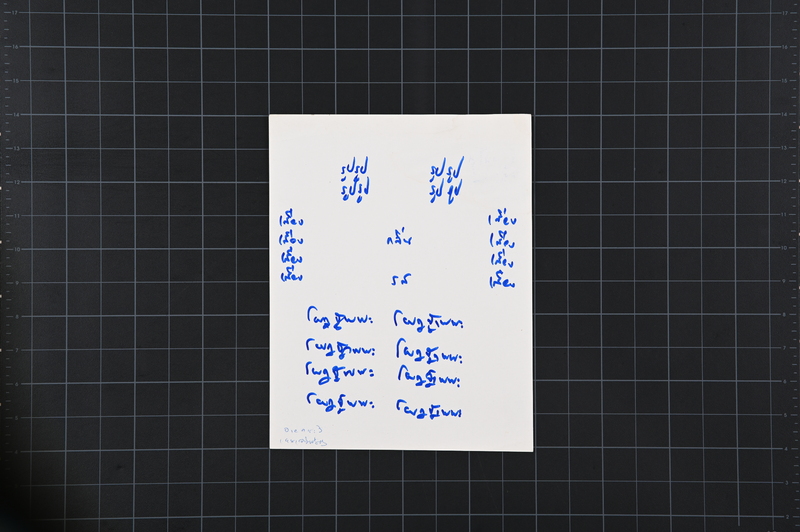 รูปรูป รูปรูป
รูปรูป รูปรูป
เสียง เสียง
เสียง กลิ่น เสียง
เสียง เสียง
เสียง รส เสียง
โผฏฐัพพะ โผฏฐัพพะ
โผฏฐัพพะ โผฏฐัพพะ
โผฏฐัพพะ โผฏฐัพพะ
โผฏฐัพพะ โผฏฐัพพะ